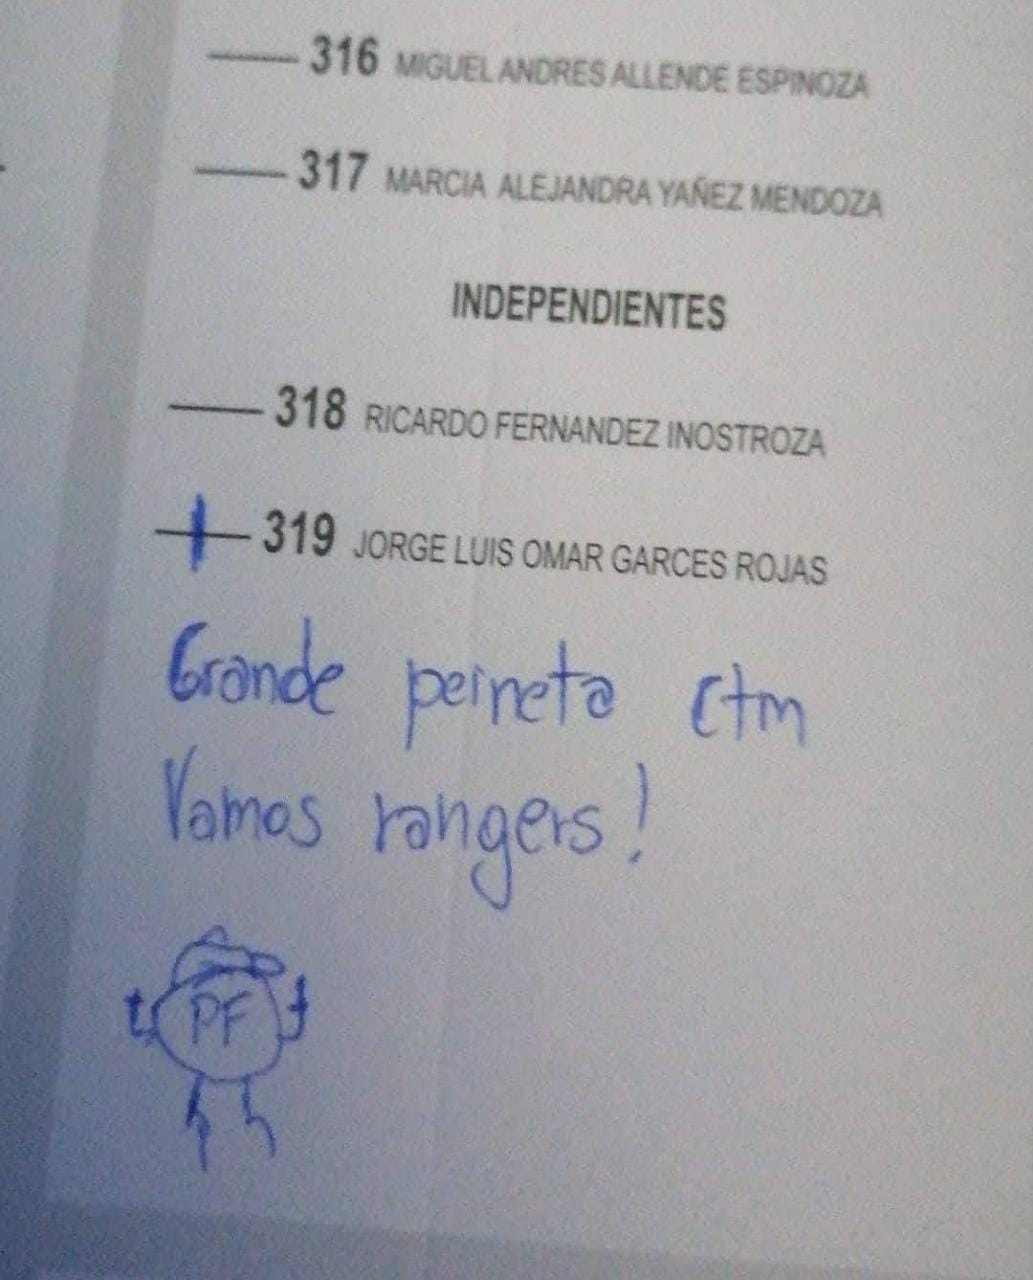 316 MIGUEL ANDRES ALLENDE ESPINOZA
317 MARCIA ALEJANDRA YAÑEZ MENDOZA
INDEPENDIENTES
318 RICARDO FERNANDEZ INOSTROZA
319 JORGE LUIS OMAR GARCES ROJAS
Grande peineta Ctm
Vamos rangers!
PF